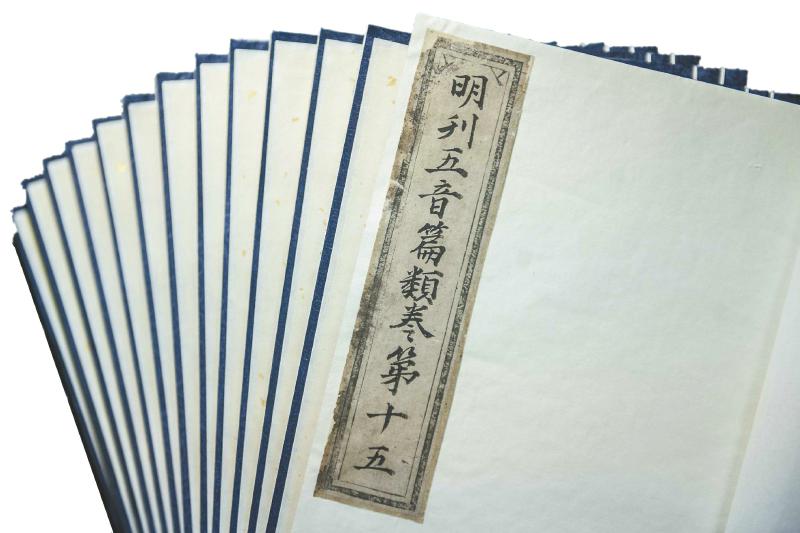 明刊五音篇類卷第十五